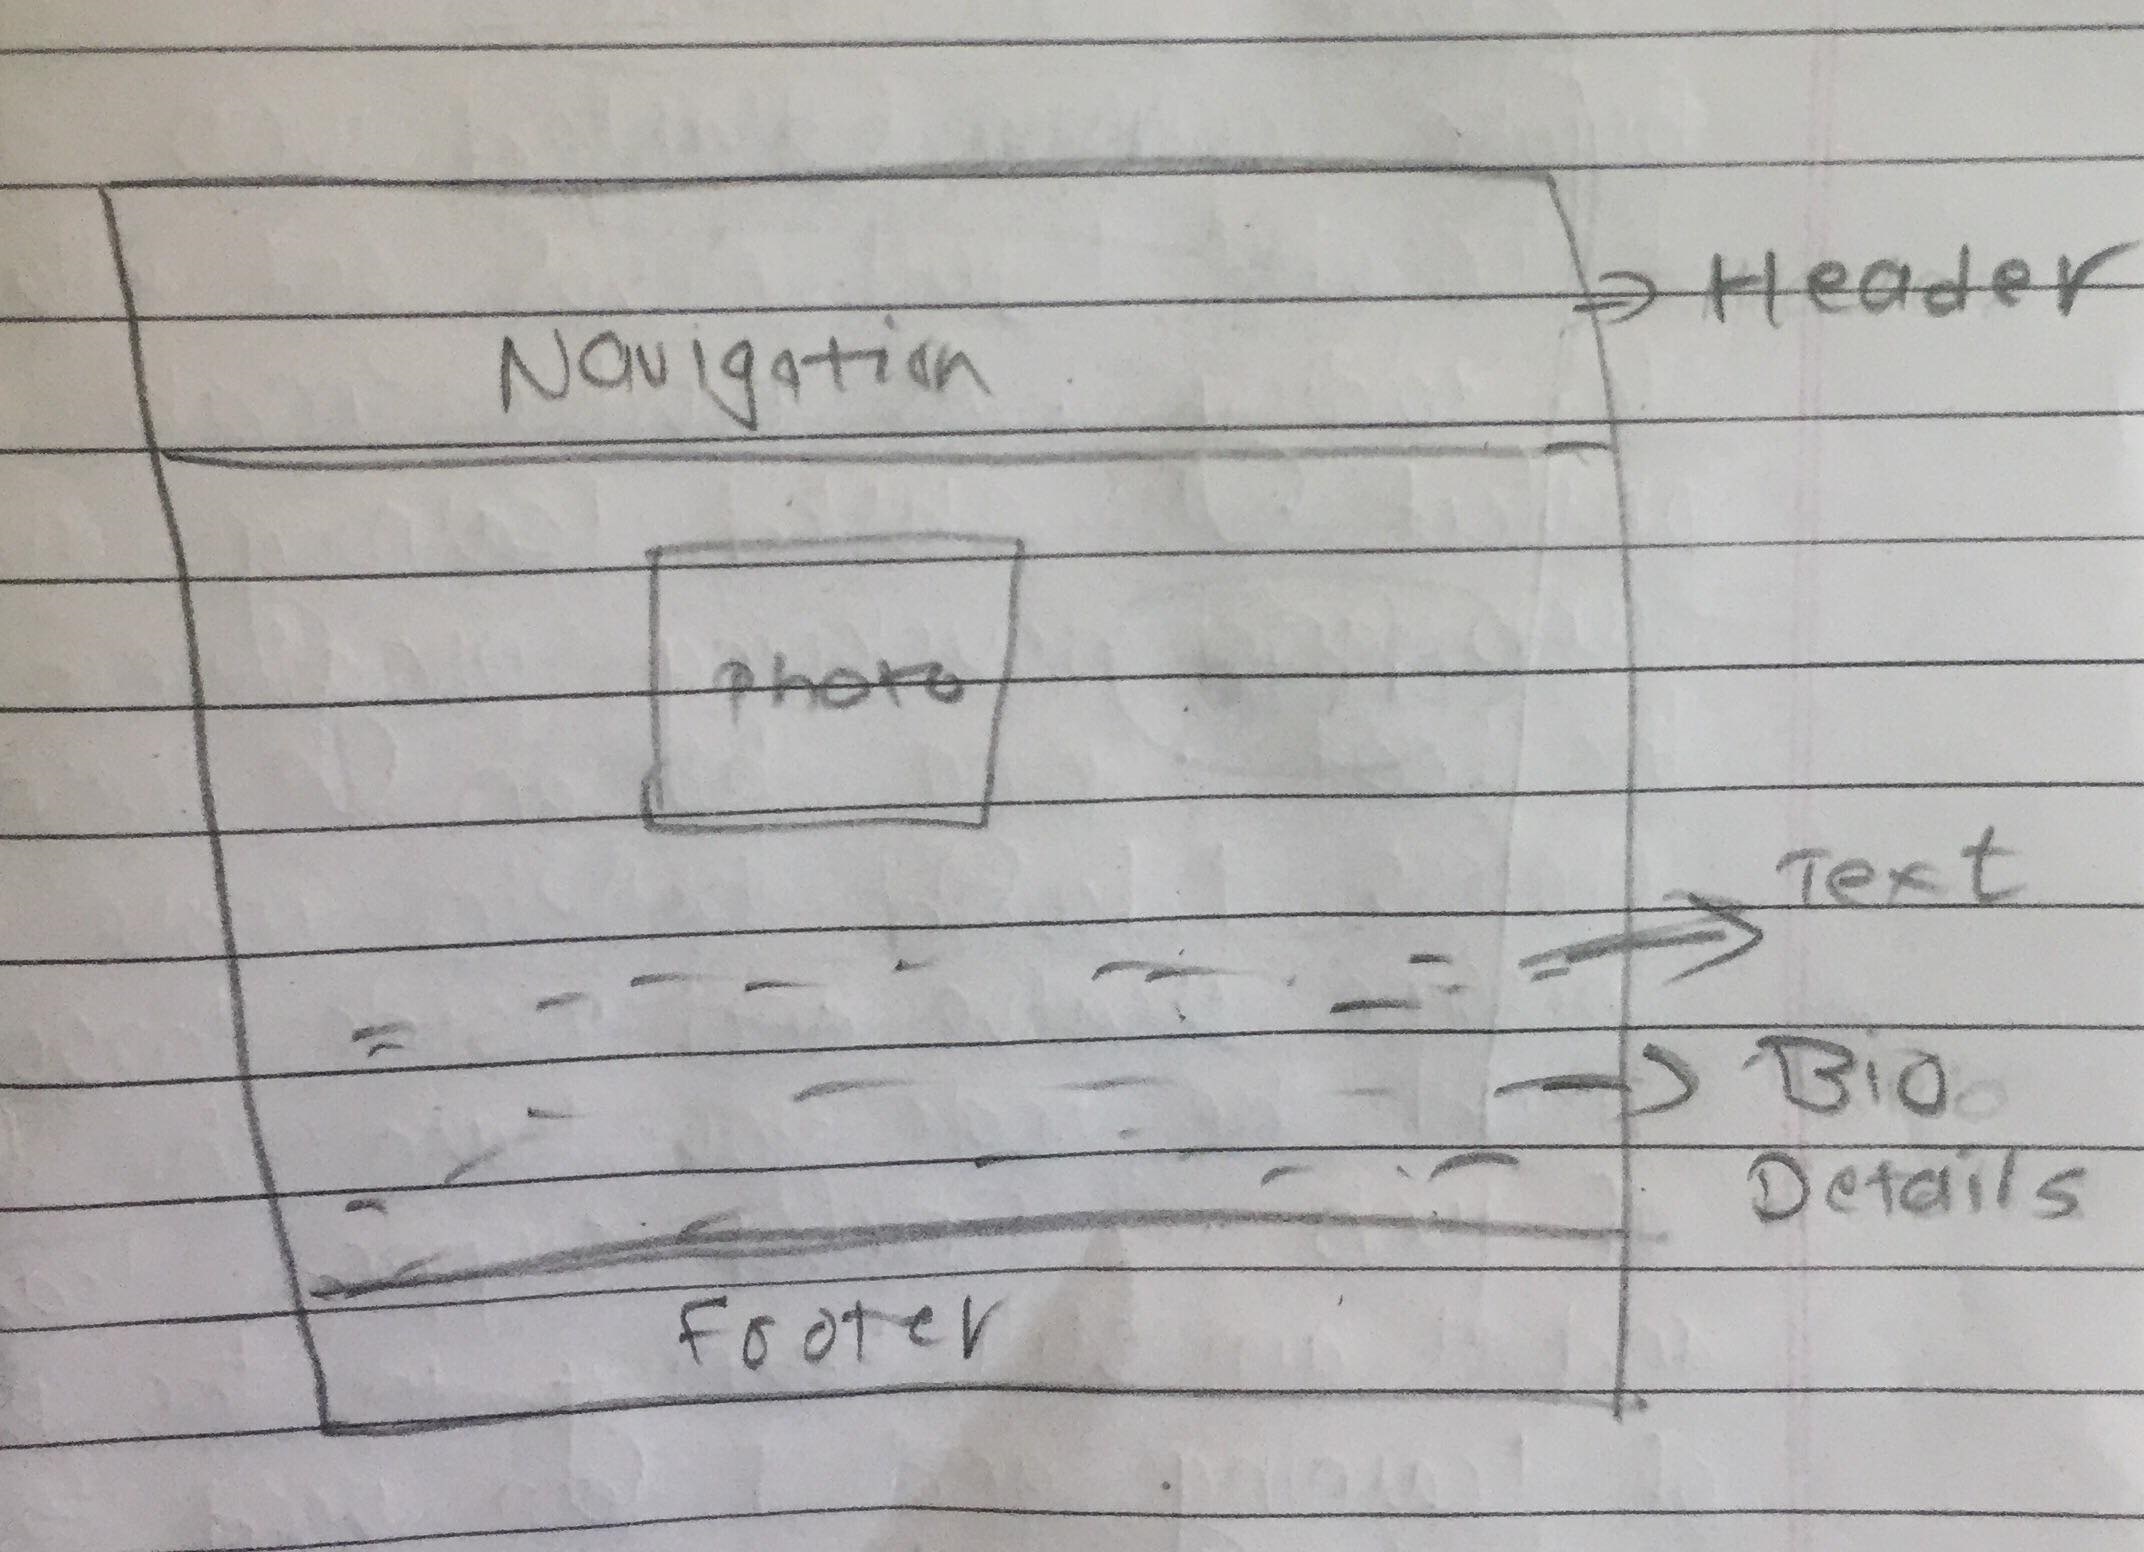 Header
Navigation
Photo
Text
Bio
Details
Footer